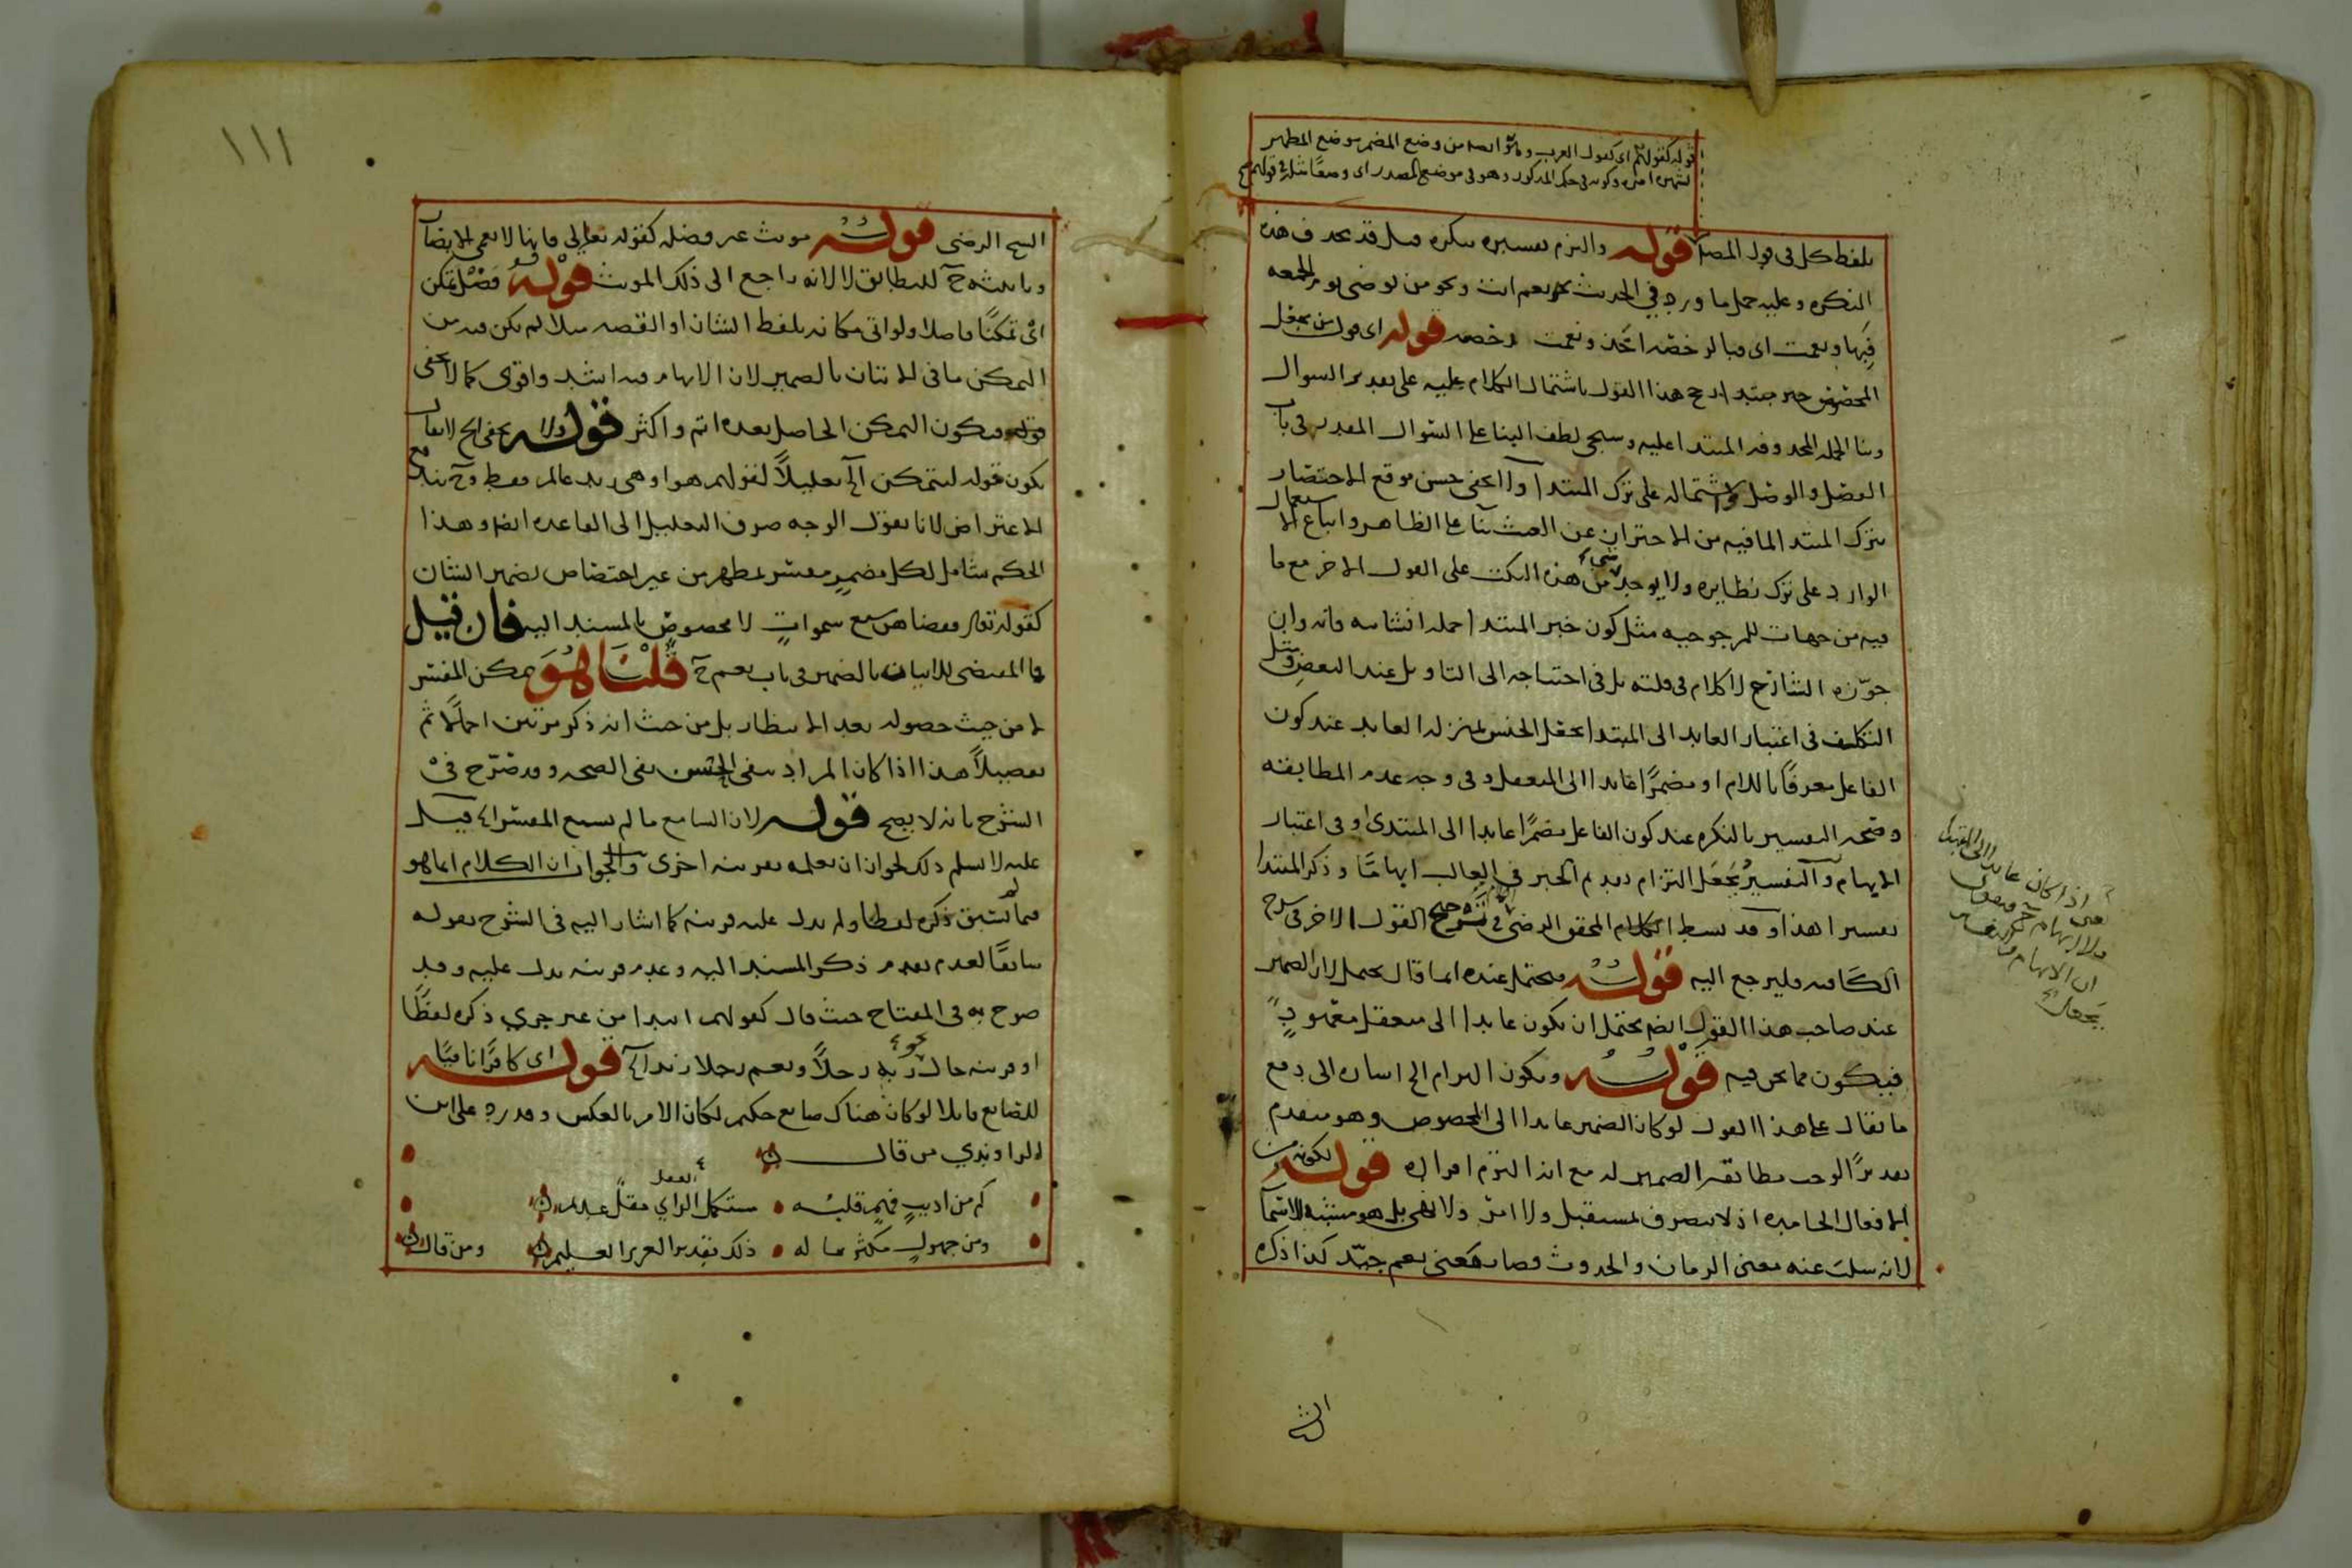 قوله كقولهم اى كقول العرب وقوله ابتداء من وضع المضمر موضع المظهر
بلفظ كل فى قول المصنف قوله والتزم تفسيره بنكرة قيل قد يحذف هذه
النكرة وعليه حمل ما ورد في الحديث نحو نعم انت ونحو من توضى يوم الجمعه
فبها ونعمت اى فبالرخصة اخذ ونعمت رخصه قوله اى قول من يجعل
المخصوص خبر مبتدا رجح هذا القول باشتمال الكلام عليه على تقدير السوال
وبنا الجملة المحذوفه المبتدا عليه وسيجى لطف البنا على السوال المقدر فى باب
الفصل والوصل واشتماله على ترك المبتدا ولا يخفى حسن موقع الاختصار
بترك المبتدا لما فيه من الاحتراز عن العبث بنا على الظاهر واتباع الاستعمال
الوارد على ترك نظايره ولا يوجد شى من هذه النكت على القول الاخر مع ما
فيه من جهات المرجوحيه مثل كون خبر المبتدا جملة انشائيه فانه وان
جوزه الشارح لا كلام فى قلته بل فى احتياجه الى التاويل عند البعض ومثل
التكلف فى اعتبار العايد الى المبتدا بجعل الجنس بمنزلة العايد عند كون
الفاعل معرفا باللام او مضمرا عايدا الى المتعقل وفى وجه عدم المطابقه
وصحه التفسير بالنكره عند كون الفاعل مضمرا عايدا الى المبتدى او فى اعتبار
الابهام والتفسير بجعل التزام تقديم الخبر فى الغالب ابهاما وذكر المبتدا
تفسيرا هذا وقد بسط الكلام المحقق الرضى فى ترجيح القول الاخر فى شرح
الكافيه فليرجع اليه قوله فيحتمل عنده انما قال يحتمل لان الضمير
عند صاحب هذا القول ايضا يحتمل ان يكون عايدا الى متعقل معهود
فيكون مما نحن فيه قوله ويكون التزام الخ اشارة الى دفع
ما يقال على هذا القول لو كان الضمير عايدا الى المخصوص وهو متقدم
تقديرا لوجب مطابقة الضمير له مع انه التزم افراده قوله لكونه من
الافعال الجامده اذ لا يتصرف بمستقبل ولا امر ولا نهى بل هو مشبه للاسما
لانه سلب عنه معنى الزمان والحدوث وصار كمعنى نعم جيد كذا ذكره
يعنى اذا كان عايدا الى المبتدا
الشيخ
١١١
الشيخ الرضى قوله مونث غير فضله كقوله تعالى فانها لا تعمى الابصار
وتانيثه ح للتطابق لا لانه راجع الى ذلك المونث قوله فضل تمكن
اى تمكنا فاضلا ولو اتى مكانه بلفظ الشان او القصه مثلا لم يكن فيه من
التمكن ما فى الاتيان بالضمير لان الابهام فيه اشد واقوى كما لا يخفى
قوله فيكون التمكن الحاصل بعده اتم واكثر قوله ولا يخفى الخ لا يقال
يكون قوله ليتمكن الخ تعليلا لقولهم هو او هى زيد عالم فقط وح يندفع
الاعتراض لانا نقول الوجه صرف التعليل الى القاعده ايضا وهذا
الحكم شامل لكل مضمر مفسر بمظهر من غير اختصاص بضمير الشان
كقوله تعالى فقضاهن سبع سموات لا مخصوص بالمسند اليه فان قيل
ما المقتضى للاتيان بالضمير فى باب نعم ح قلنا هو تمكن المفسر
لا من حيث حصوله بعد الانتظار بل من حيث انه ذكر مرتين اجمالا ثم
تفصيلا هذا اذا كان المراد بنفى الحسن نفى الصحه وقد صرح فى
الشرح بانه لا يصح قوله لان السامع ما لم يسمع المفسر الخ قيل
عليه لا نسلم ذلك لجواز ان يعلمه بقرينه اخرى والجواب ان الكلام انما هو
فيما لم يسبق ذكره لفظا ولم يدل عليه قرينه كما اشار اليه فى الشرح بقوله
سابقا لعدم تقدم ذكر المسند اليه وعدم قرينه تدل عليه وقد
صرح به فى المفتاح حيث قال كقولهم ابتدا من غير جرى ذكره لفظا
او قرينه حال نحو ربه رجلا ونعم رجلا زيد الخ قوله اى كافرا نافيا
للصانع قايلا لو كان هناك صانع حكيم لكان الامر بالعكس وقد رد على ابن
الراوندي من قال
كم من اديب فهم قلبه • مستكمل العقل مقل عديم
ومن جهول مكثر ماله • ذلك تقدير العزيز العليم ومن قال